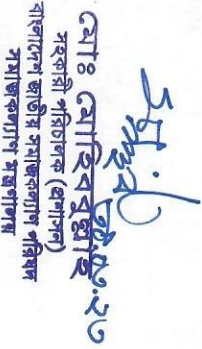 ০৯.০২.২৩
মোঃ মোহিবুল্লাহ
সহকারী পরিচালক (প্রশাসন)
বাংলাদেশ জাতীয় সমাজকল্যাণ পরিষদ
সমাজকল্যাণ মন্ত্রণালয়